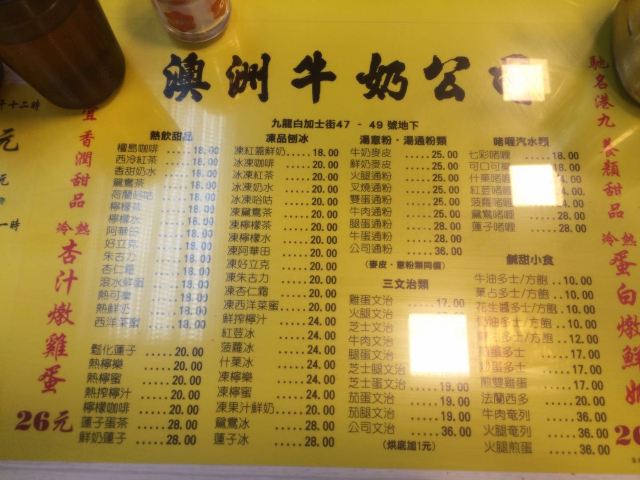 澳洲牛奶公司
九龍白加士街47 - 49號地下
馳名港九 養顏甜品
宜香潤甜品
冷熱 杏汁燉雞蛋
26元
冷熱 蛋白燉鮮奶
熱飲甜品
檀島咖啡 ..... 18.00
西冷紅茶 ..... 18.00
香甜奶水 ..... 18.00
鴛鴦茶 ..... 18.00
荷蘭谷咕 ..... 18.00
檸檬茶 ..... 18.00
檸檬水 ..... 18.00
阿華田 ..... 18.00
好立克 ..... 18.00
朱古力 ..... 18.00
杏仁霜 ..... 18.00
滾水鮮蜜 ..... 18.00
熱可樂 ..... 18.00
熱鮮奶 ..... 18.00
西洋菜蜜 ..... 18.00
鬆化蓮子 ..... 20.00
熱檸樂 ..... 20.00
熱檸蜜 ..... 20.00
熱搾檸汁 ..... 20.00
檸檬咖啡 ..... 20.00
蓮子蛋茶 ..... 28.00
鮮奶蓮子 ..... 28.00
凍品刨冰
凍紅蓋鮮奶 ..... 18.00
冰凍咖啡 ..... 20.00
冰凍紅茶 ..... 20.00
冰凍奶水 ..... 20.00
冰凍谷咕 ..... 20.00
凍鴛鴦茶 ..... 20.00
凍檸檬茶 ..... 20.00
凍檸檬水 ..... 20.00
凍阿華田 ..... 20.00
凍好立克 ..... 20.00
凍朱古力 ..... 20.00
凍杏仁霜 ..... 20.00
凍西洋菜蜜 ..... 20.00
鮮搾檸汁 ..... 24.00
紅荳冰 ..... 24.00
菠蘿冰 ..... 24.00
什菓冰 ..... 24.00
凍檸樂 ..... 24.00
凍檸蜜 ..... 24.00
凍菓汁鮮奶 ..... 24.00
鴛鴦冰 ..... 28.00
蓮子冰 ..... 28.00
湯意粉・湯通粉類
牛奶麥皮 ..... 25.00
鮮奶麥皮 ..... 25.00
火腿通粉 ..... 25.00
叉燒通粉 ..... 25.00
雙蛋通粉 ..... 25.00
牛肉通粉 ..... 25.00
腿蛋通粉 ..... 28.00
牛蛋通粉 ..... 28.00
公司通粉 ..... 36.00
(麥皮、意粉類同價)
三文治類
雞蛋文治 ..... 17.00
火腿文治
芝士文治
牛肉文治
腿蛋文治
芝士腿文治
芝士蛋文治 ..... 19.00
茄蛋文治 ..... 19.00
茄腿文治 ..... 19.00
公司文治 ..... 36.00
(烘底加1元)
啫喱汽水類
七彩啫喱 ..... 18.00
可口可
什菓啫喱
紅荳啫喱
菠蘿啫喱
鴛鴦啫喱 ..... 28.00
蓮子啫喱 ..... 28.00
鹹甜小食
牛油多士/方飽 ..... 10.00
菓占多士/方飽 ..... 10.00
花生醬多士/方飽 ..... 10.00
奶油多士/方飽 ..... 10.00
多士/方飽 ..... 12.00
蛋多士 ..... 17.00
蛋多士 ..... 17.00
煎雙雞蛋 ..... 20.00
法蘭西多 ..... 20.00
牛肉奄列 ..... 36.00
火腿奄列 ..... 36.00
火腿煎蛋 ..... 36.00